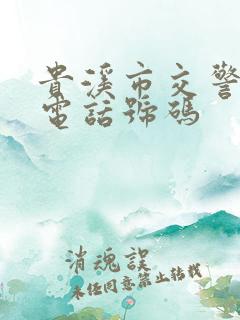 貴溪市交警
電話號碼
消魂誤
未经同意禁止转载